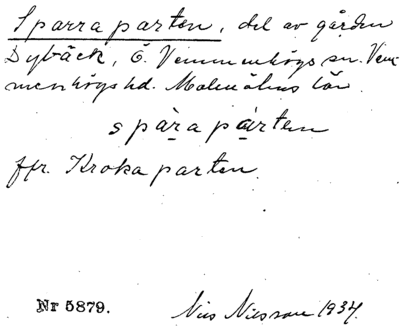 Sparraparten, del av gården
Dybäck, Ö. Vemmenhögs sn. Vem-
menhögs hd. Malmöhus län
spàrapárten
jfr. Krokaparten.
Nr 5879. Nils Nilsson 1934.